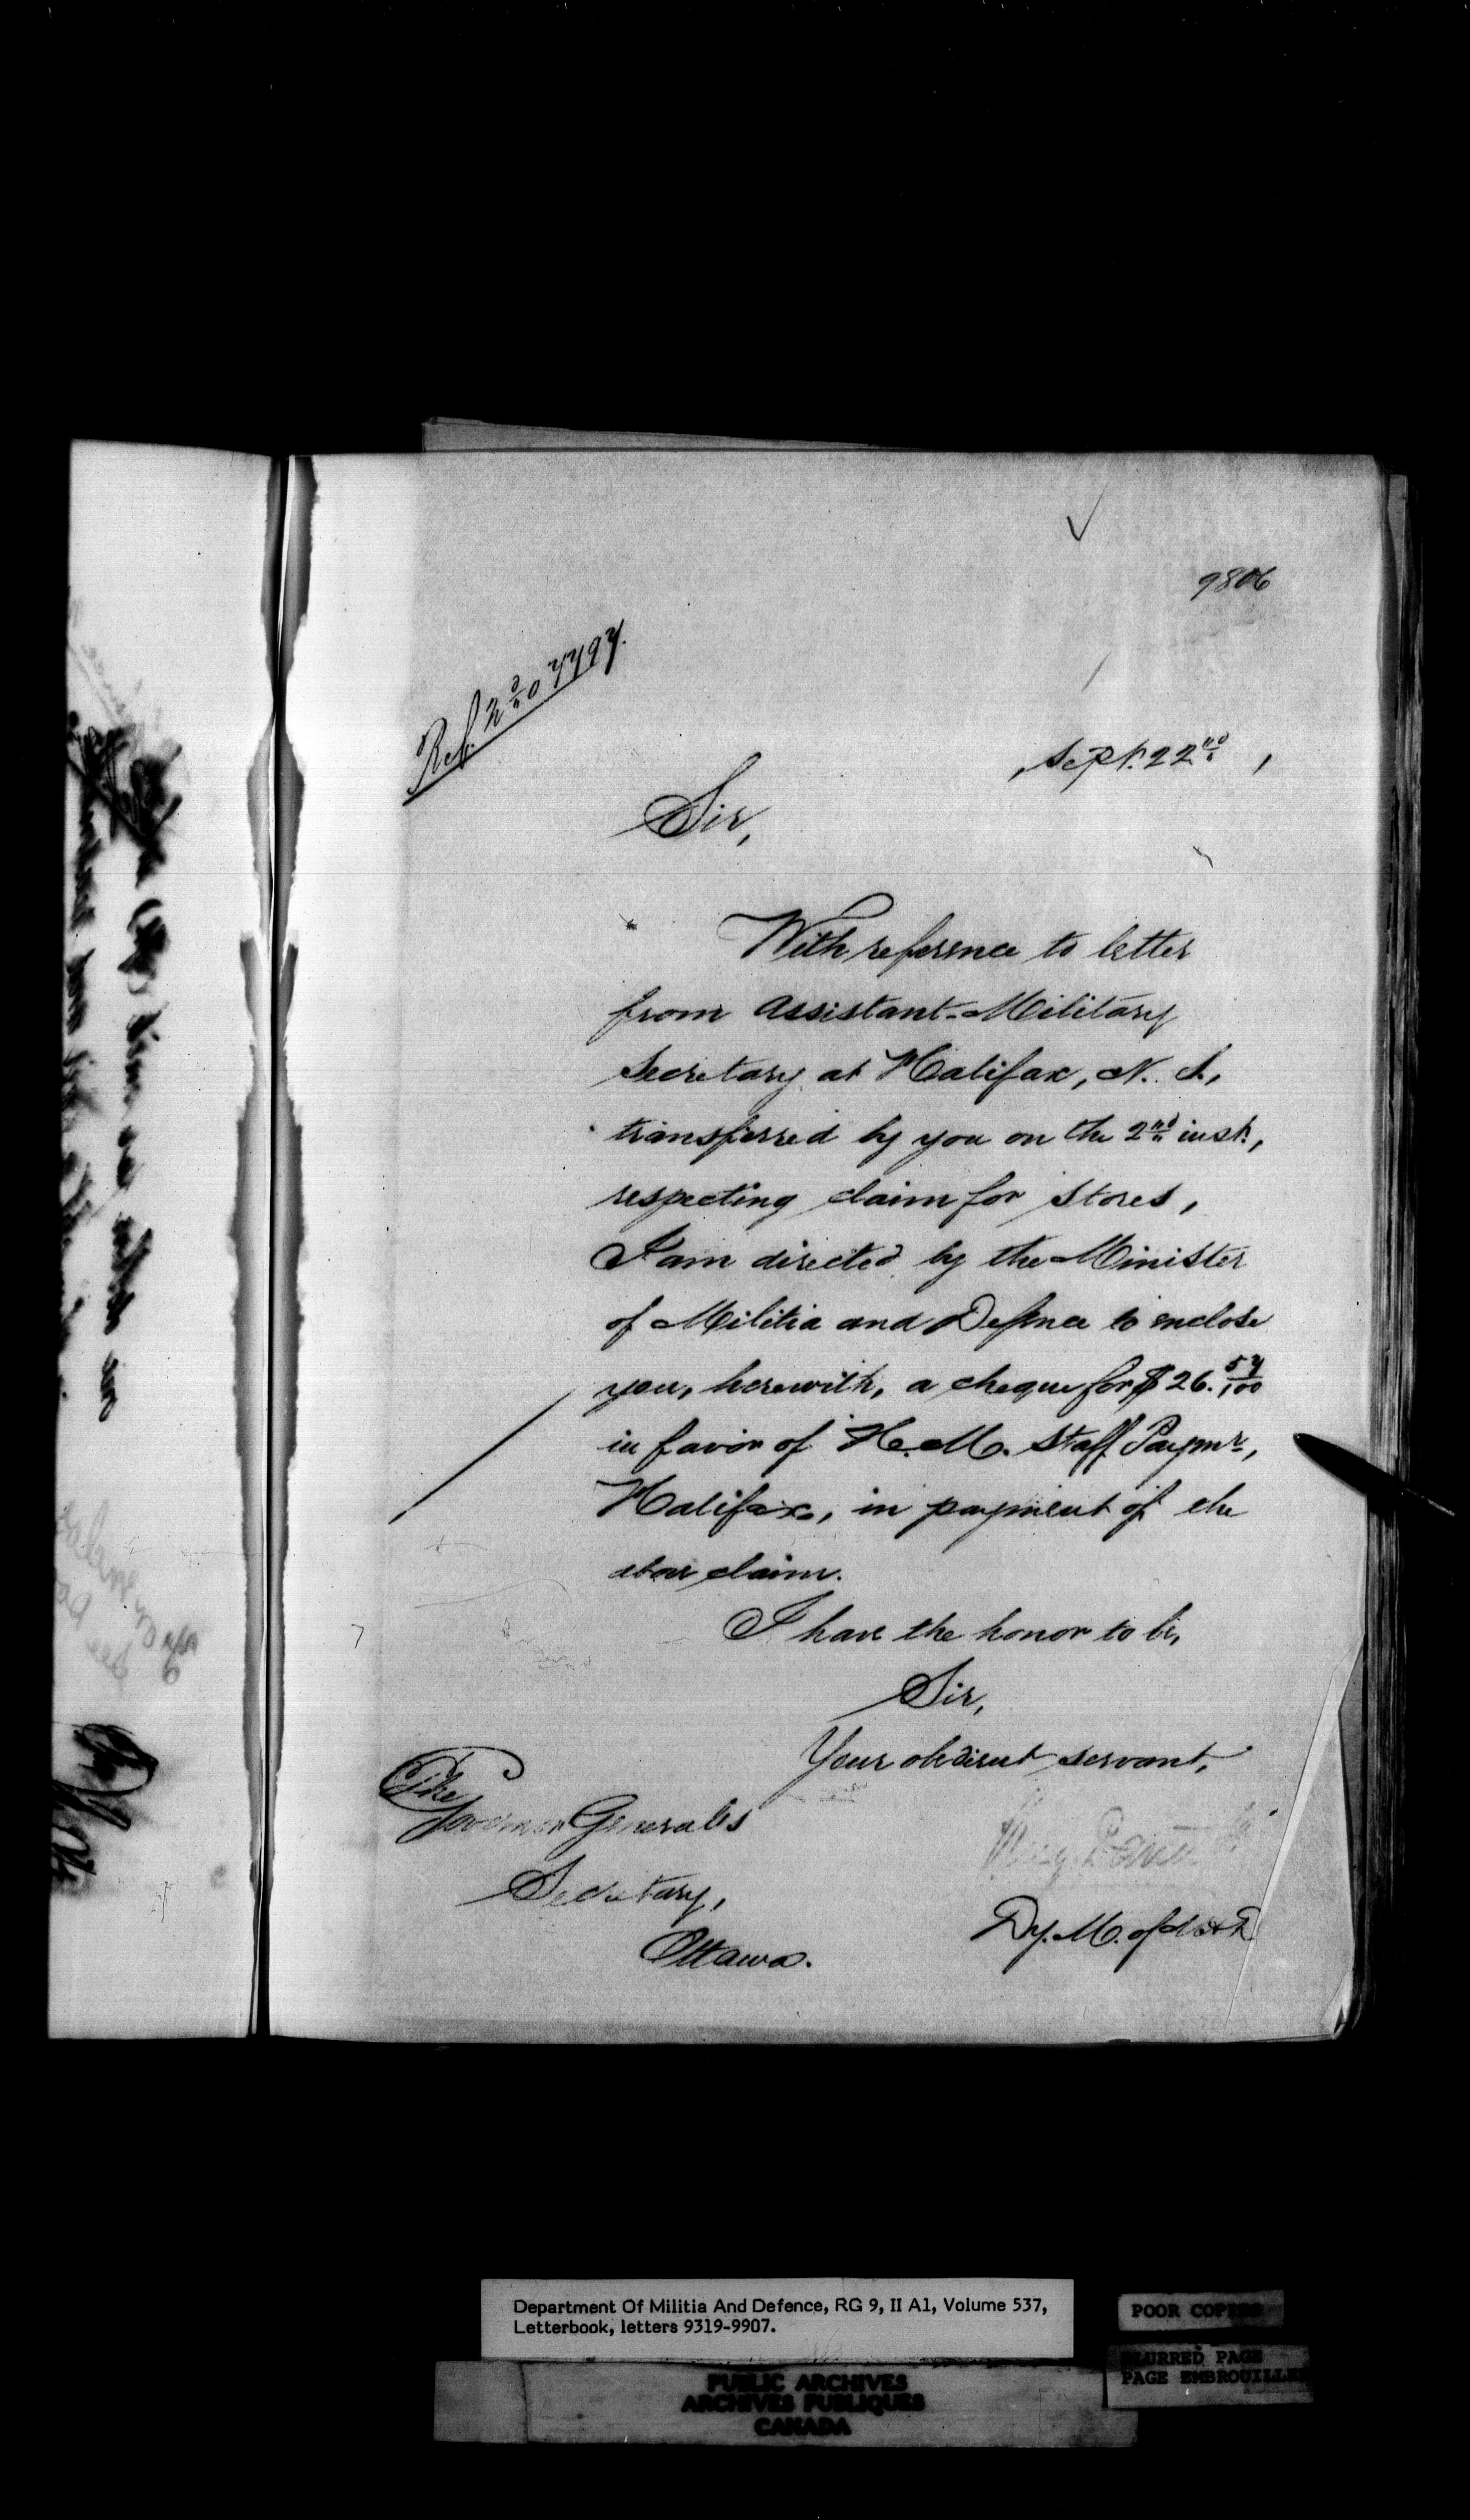 9806
Ref. No 7797.
Sept. 22nd,
Sir,
With reference to letter
from Assistant-Military
Secretary at Halifax, N. S.,
transferred by you on the 2nd inst.,
respecting claim for Stores,
I am directed by the Minister
of Militia and Defence to enclose
you, herewith, a cheque for $26.57/100
in favor of H. M. Staff Paymr.,
Halifax, in payment of the
above claim.
I have the honor to be,
Sir,
Your obedient servant,
The
Governor General's
Secretary,
Ottawa.
Dy. M. of M & D
Department Of Militia And Defence, RG 9, II A1, Volume 537,
Letterbook, letters 9319-9907.
POOR COPIES
BLURRED PAGE
PAGE EMBROUILLEE
PUBLIC ARCHIVES
ARCHIVES PUBLIQUES
CANADA